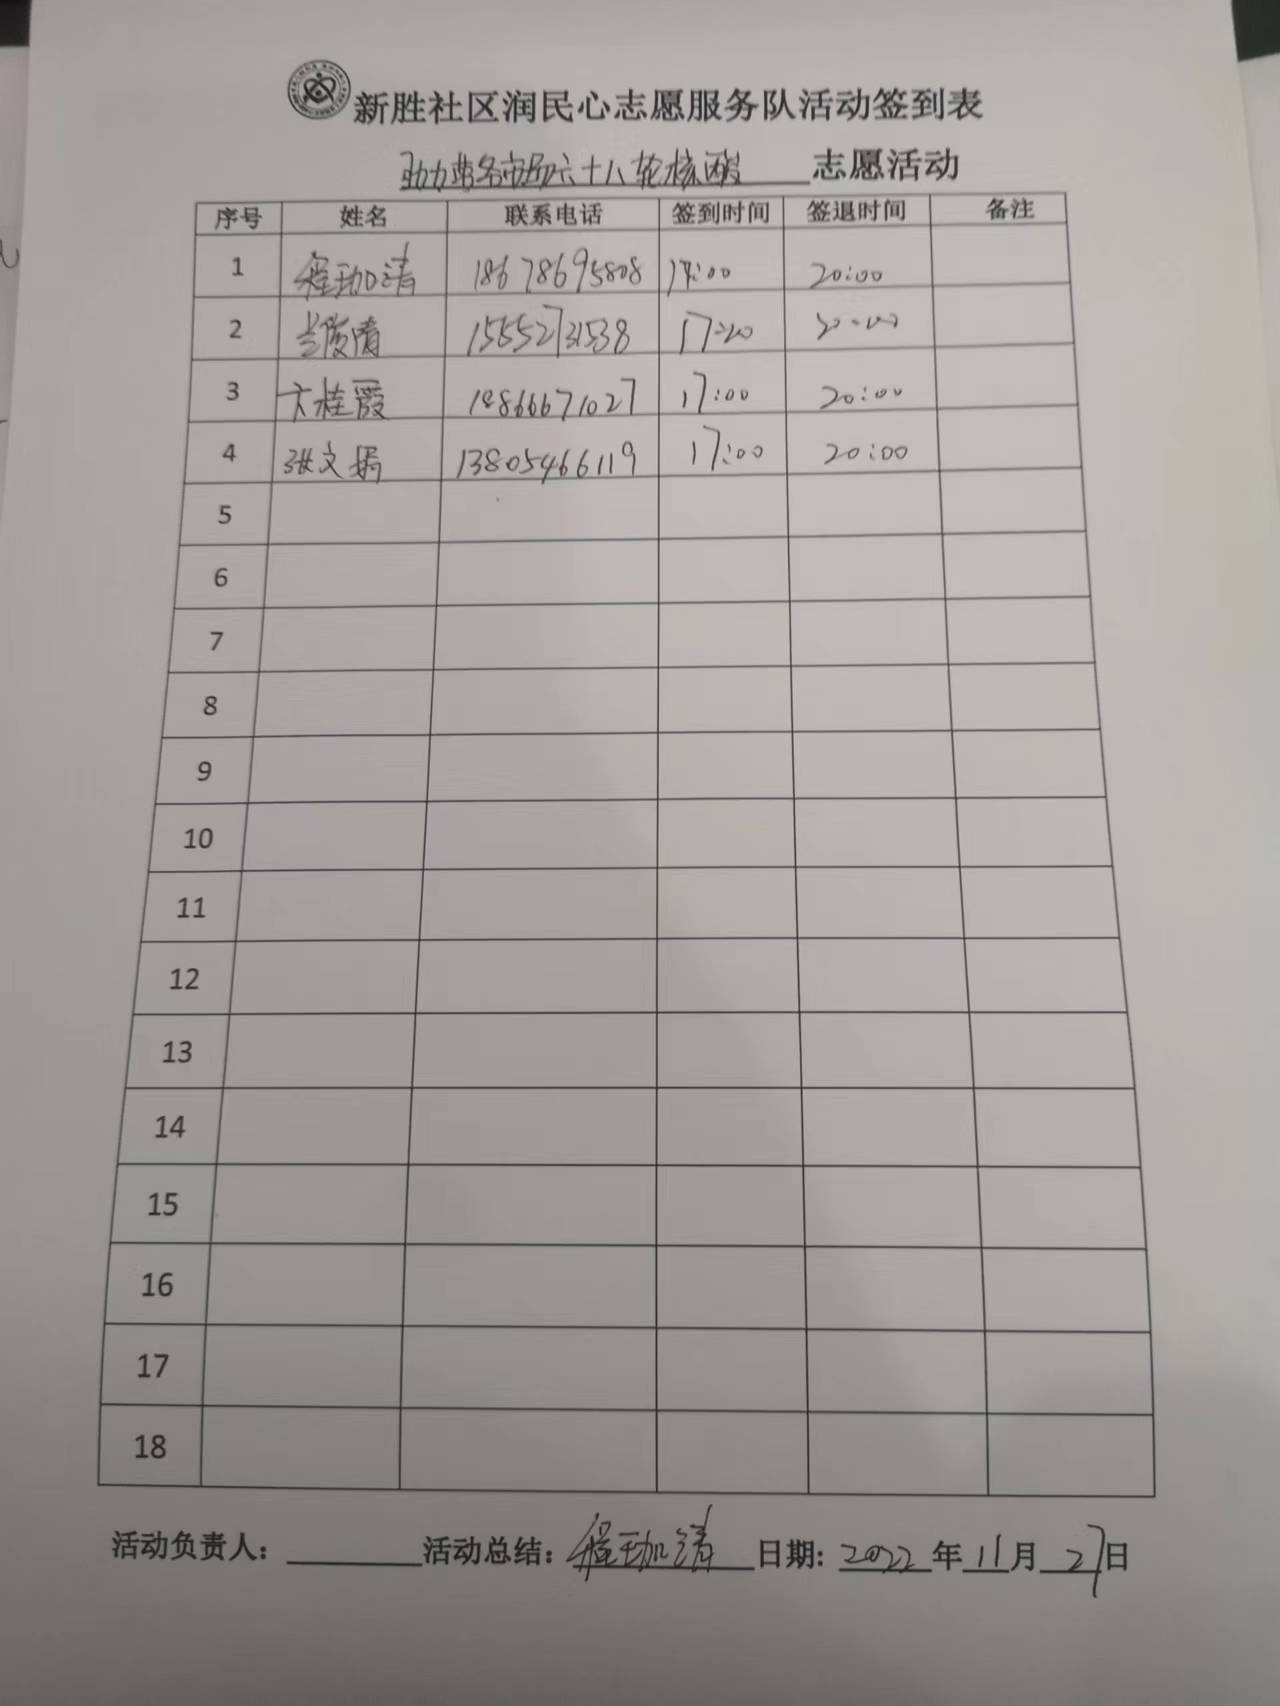 新胜社区润民心志愿服务队活动签到表
六十八轮核酸 志愿活动
序号 姓名 联系电话 签到时间 签退时间 备注
1 程珈清 18678695808 17:00 20:00
2 15552731538 17:20
3 卞桂霞 18866671027 17:00 20:00
4 张文娟 13805466119 17:00 20:00
5
6
7
8
9
10
11
12
13
14
15
16
17
18
活动负责人: 活动总结: 程珈清 日期: 2022 年 11 月 27 日